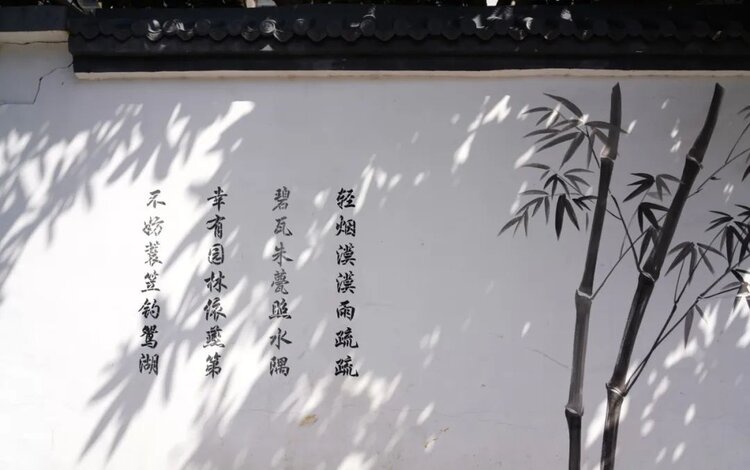 轻烟漠漠雨疏疏
碧瓦朱甍照水隅
幸有园林依燕第
不妨蓑笠钓鸳湖